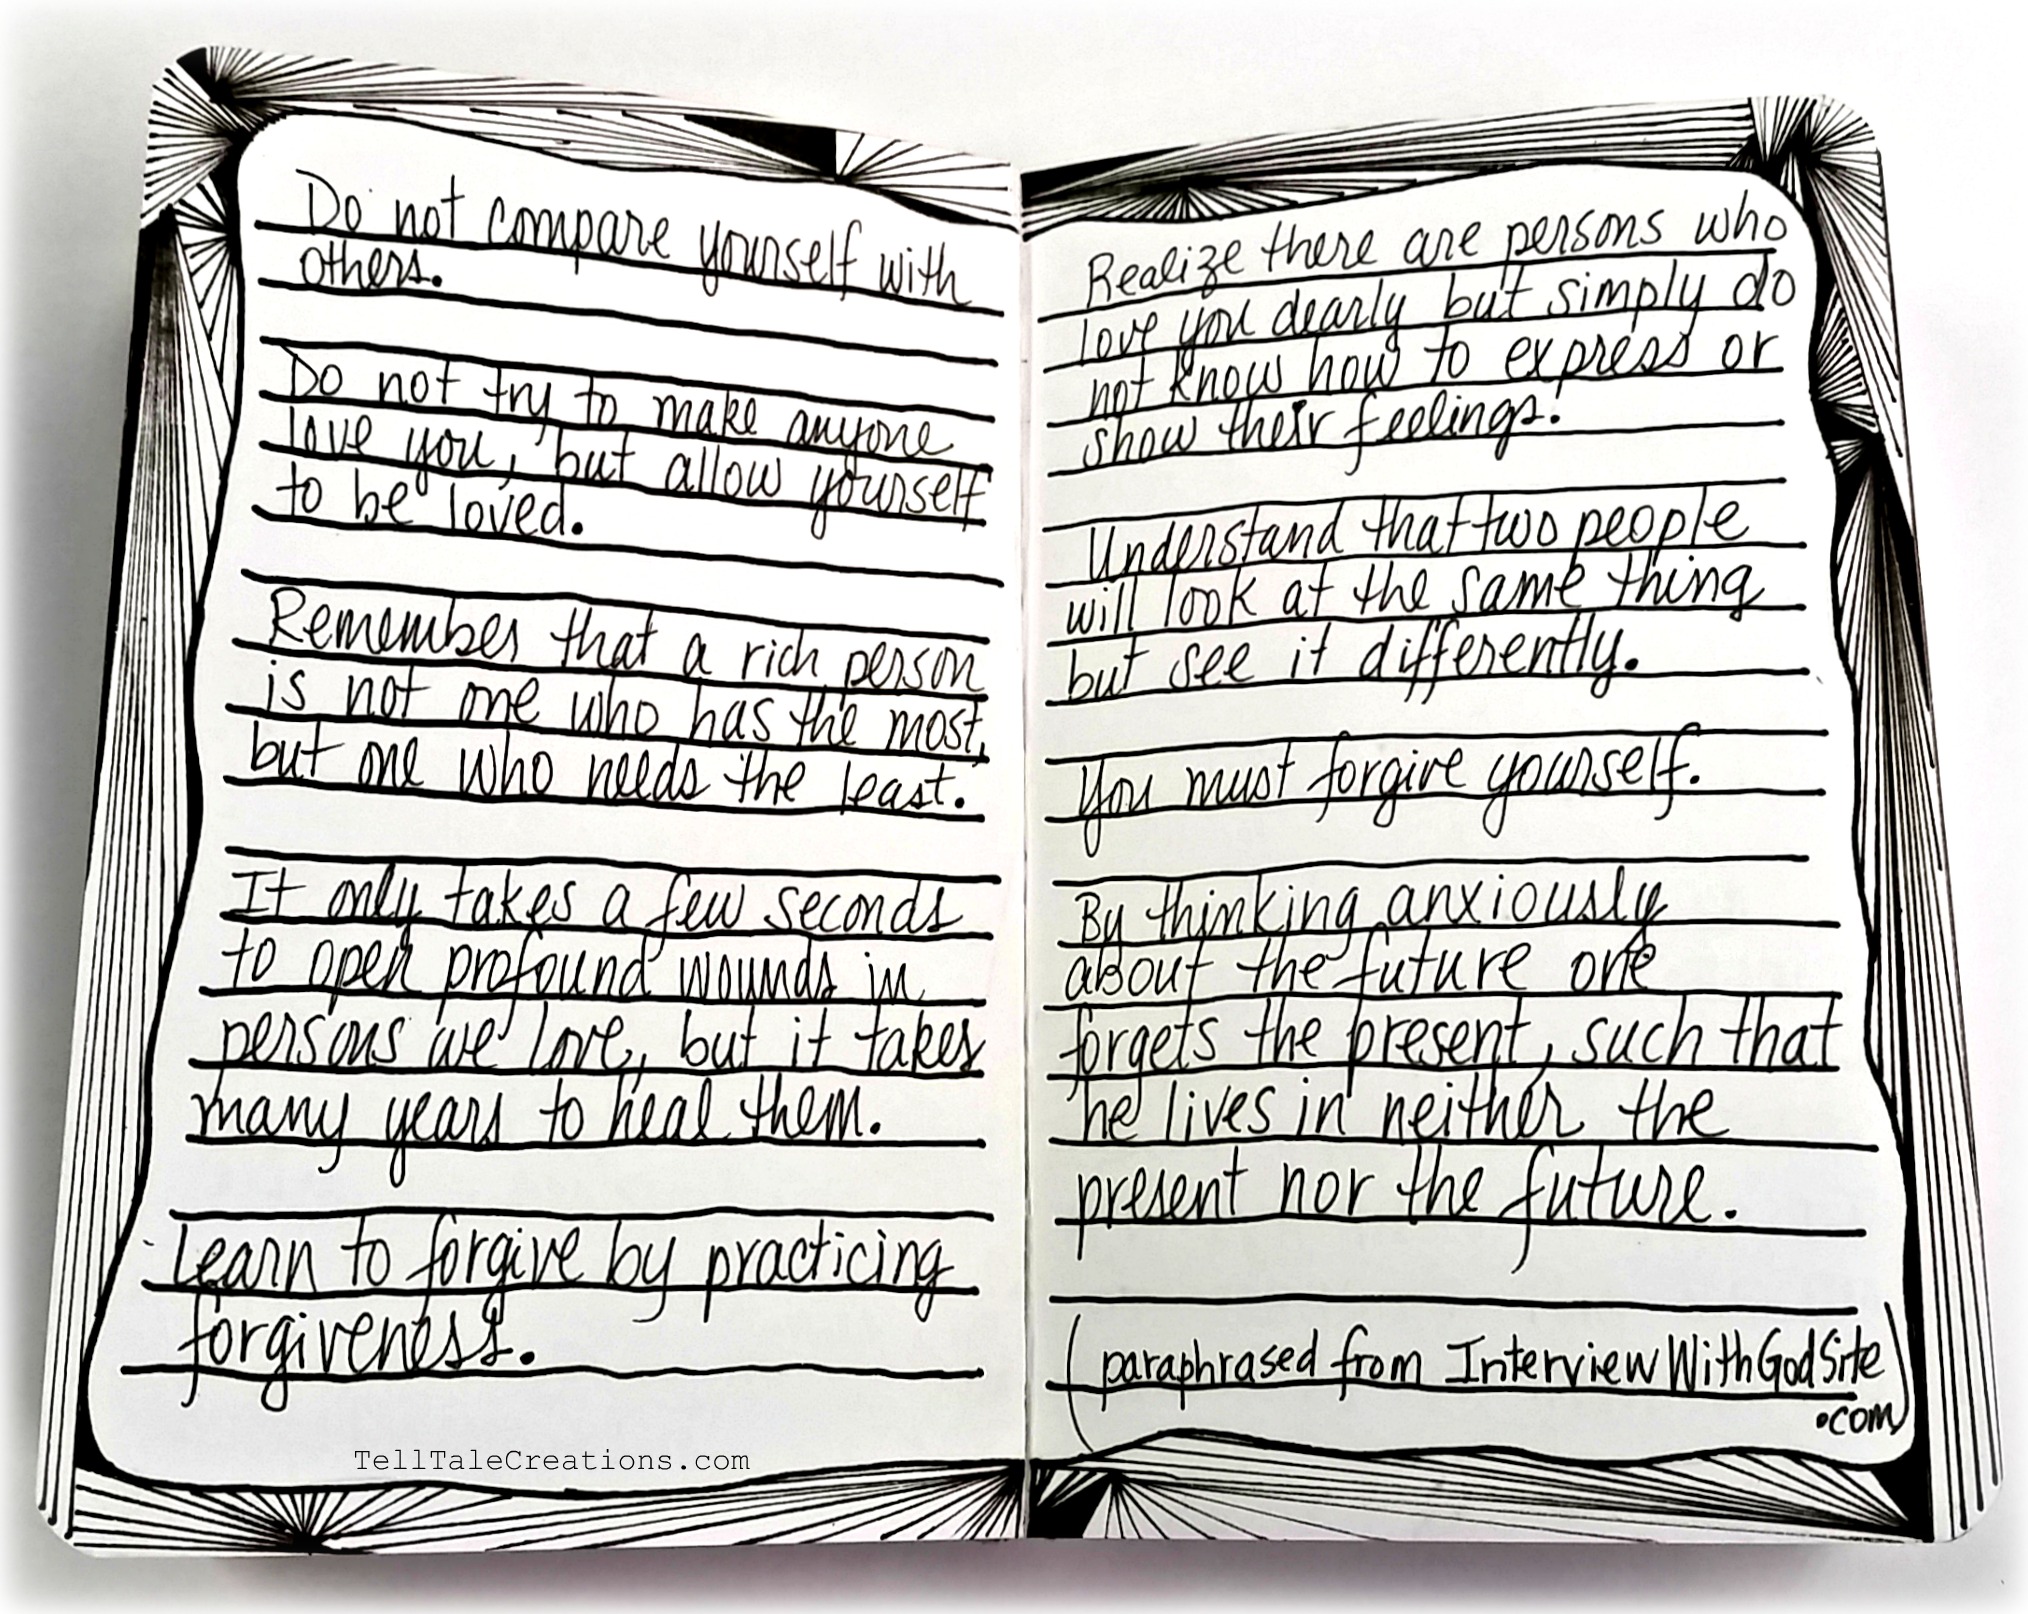 Do not compare yourself with
others.
Do not try to make anyone
love you, but allow yourself
to be loved.
Remember that a rich person
is not one who has the most,
but one who needs the least.
It only takes a few seconds
to open profound wounds in
persons we love, but it takes
many years to heal them.
Learn to forgive by practicing
forgiveness.
TellTaleCreations.com
Realize there are persons who
love you dearly but simply do
not know how to express or
show their feelings.
Understand that two people
will look at the same thing
but see it differently.
You must forgive yourself.
By thinking anxiously
about the future one
forgets the present, such that
he lives in neither the
present nor the future.
(paraphrased from InterviewWithGodSite
.com)